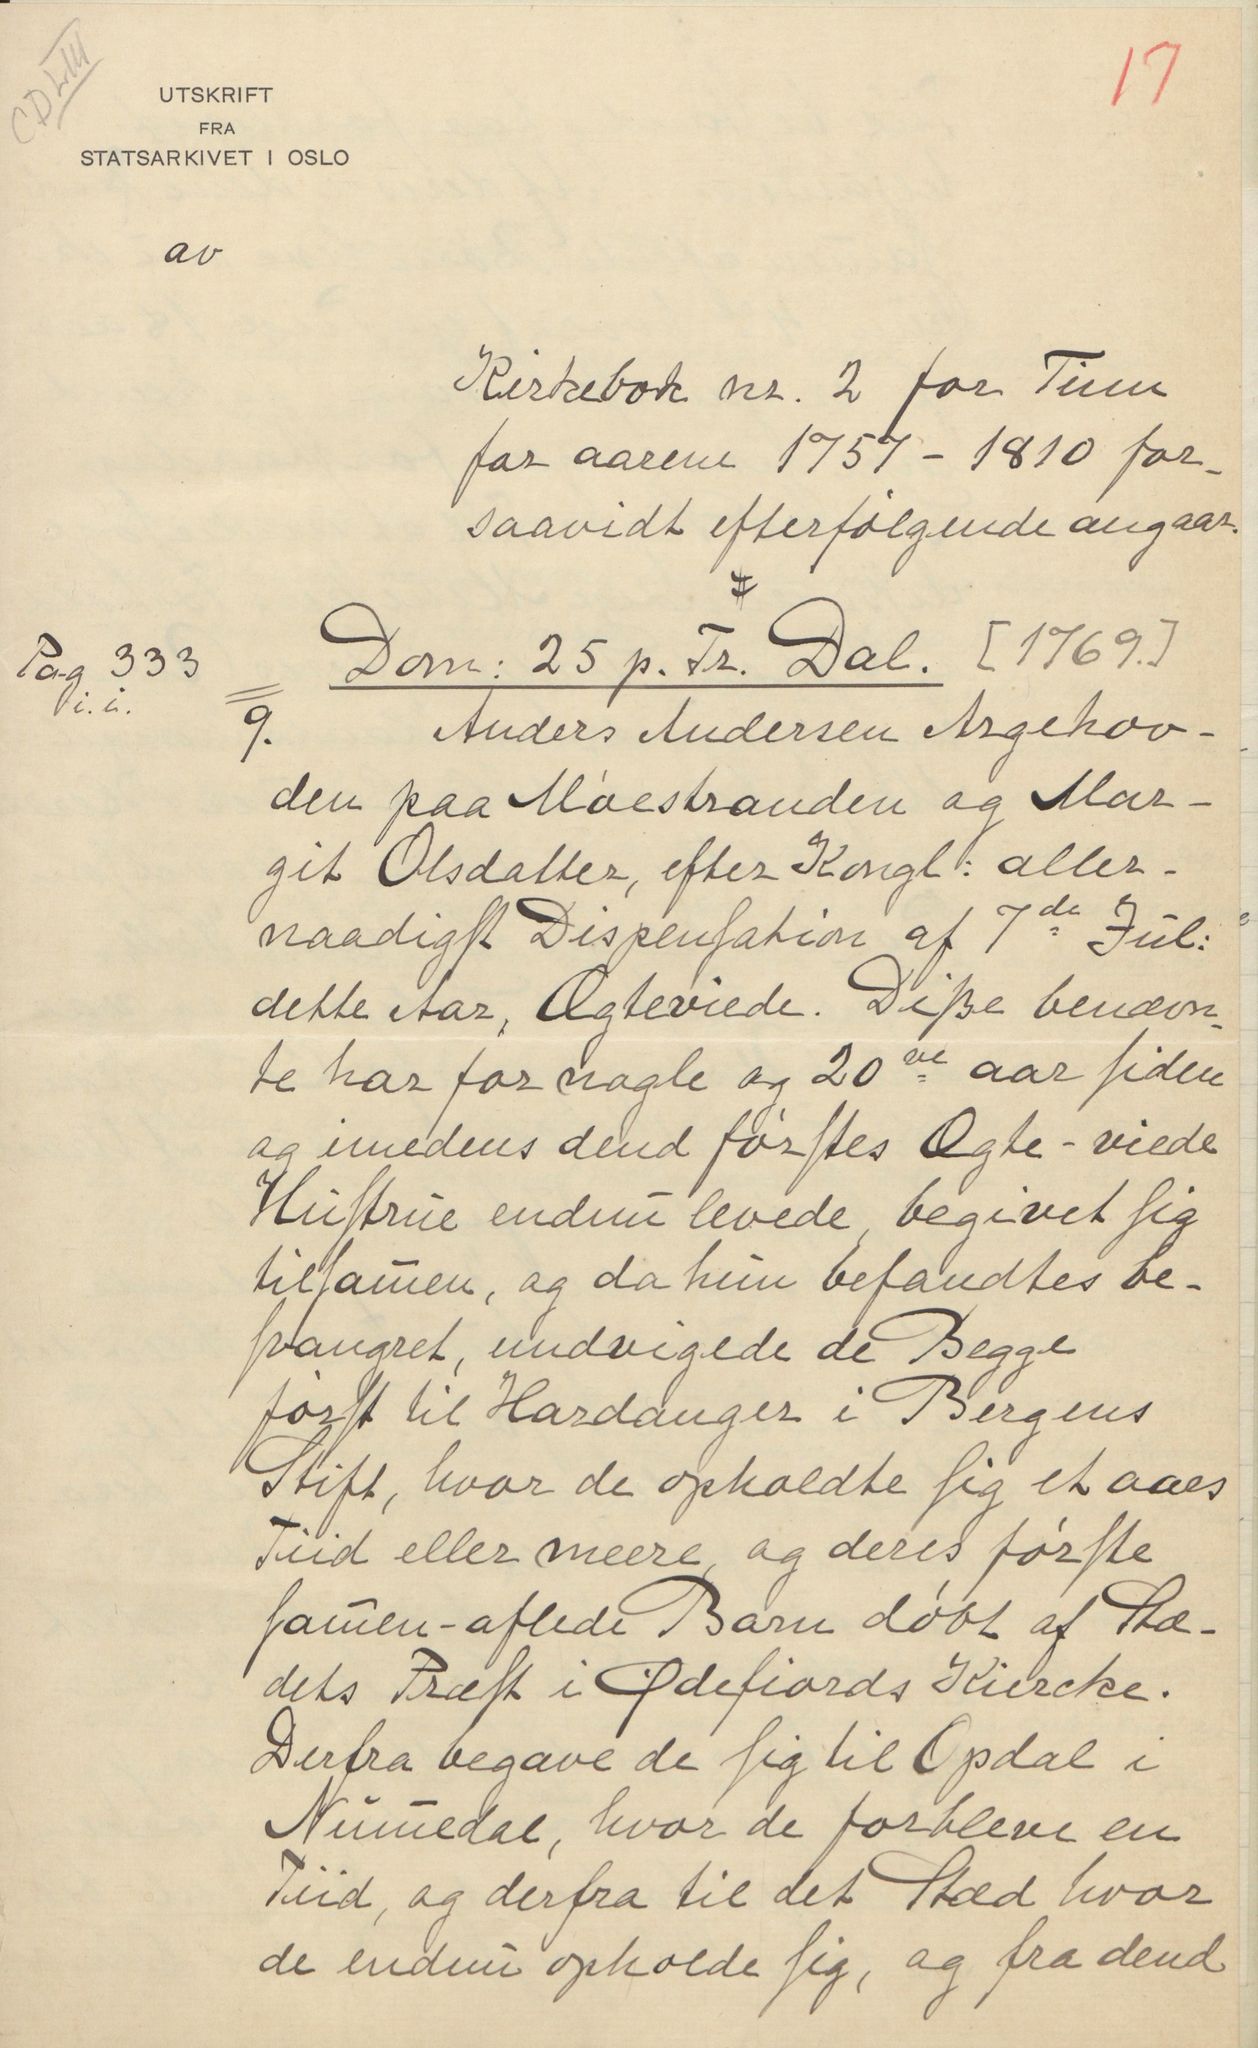 CD LIII
17
UTSKRIFT
FRA
STATSARKIVET I OSLO
av
Kirkebok nr. 2 for Tinn
for aarene 1757 - 1810 for-
saavidt efterfølgende angaar.
Pag 333
i. i.
Dom: 25 p. Tr. Dal. [1769.]
9. Anders Andersen Argehov-
den paa Møestranden og Mar-
git Olsdatter, efter Kongl: aller-
naadigſt Dispenſation af 7de Jul:
dette Aar, Ægteviede. Diße benævn-
te har for nogle og 20ve aar ſiden
og imedens dend førſtes Ægte-viede
Huſtrue endnu levede, begivet ſig
tilſam̄en, og da hun befandtes be-
ſvangret, undvigede de Begge
førſt til Hardanger i Bergens
Stift, hvor de opholdte ſig et aars
Tiid eller meere, og deres førſte
ſam̄en-aflede Barn døbt af Stæ-
dets Præſt i Ødefiords Kiercke.
Derfra begave de ſig til Opdal i
Num̄edal, hvor de forbleve en
Tiid, og derfra til det Stæd hvor
de endnu opholde ſig, og fra dend